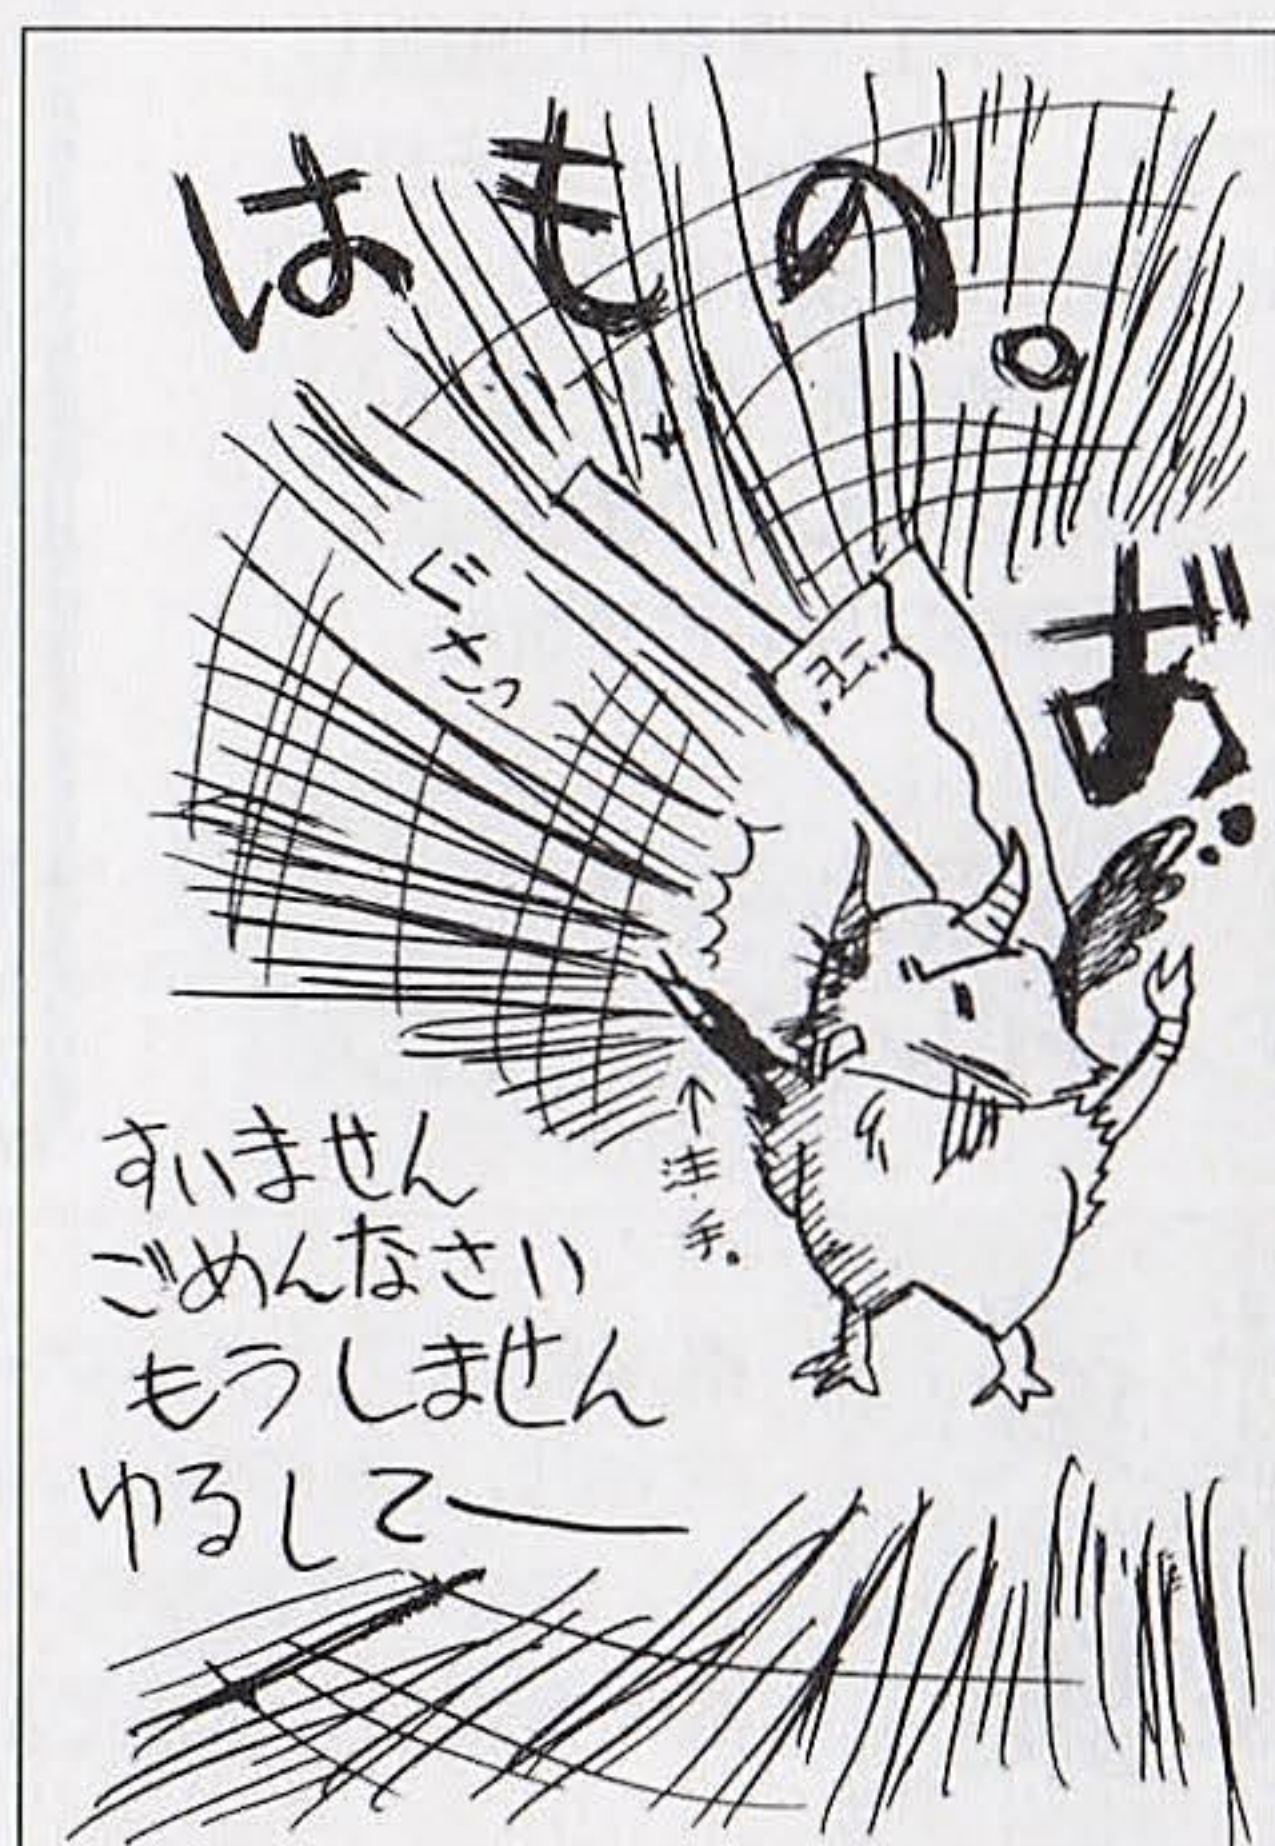 はもの。
あ゛
じさつ
←注.手。
すいません
ごめんなさい
もうしません
ゆるしてー